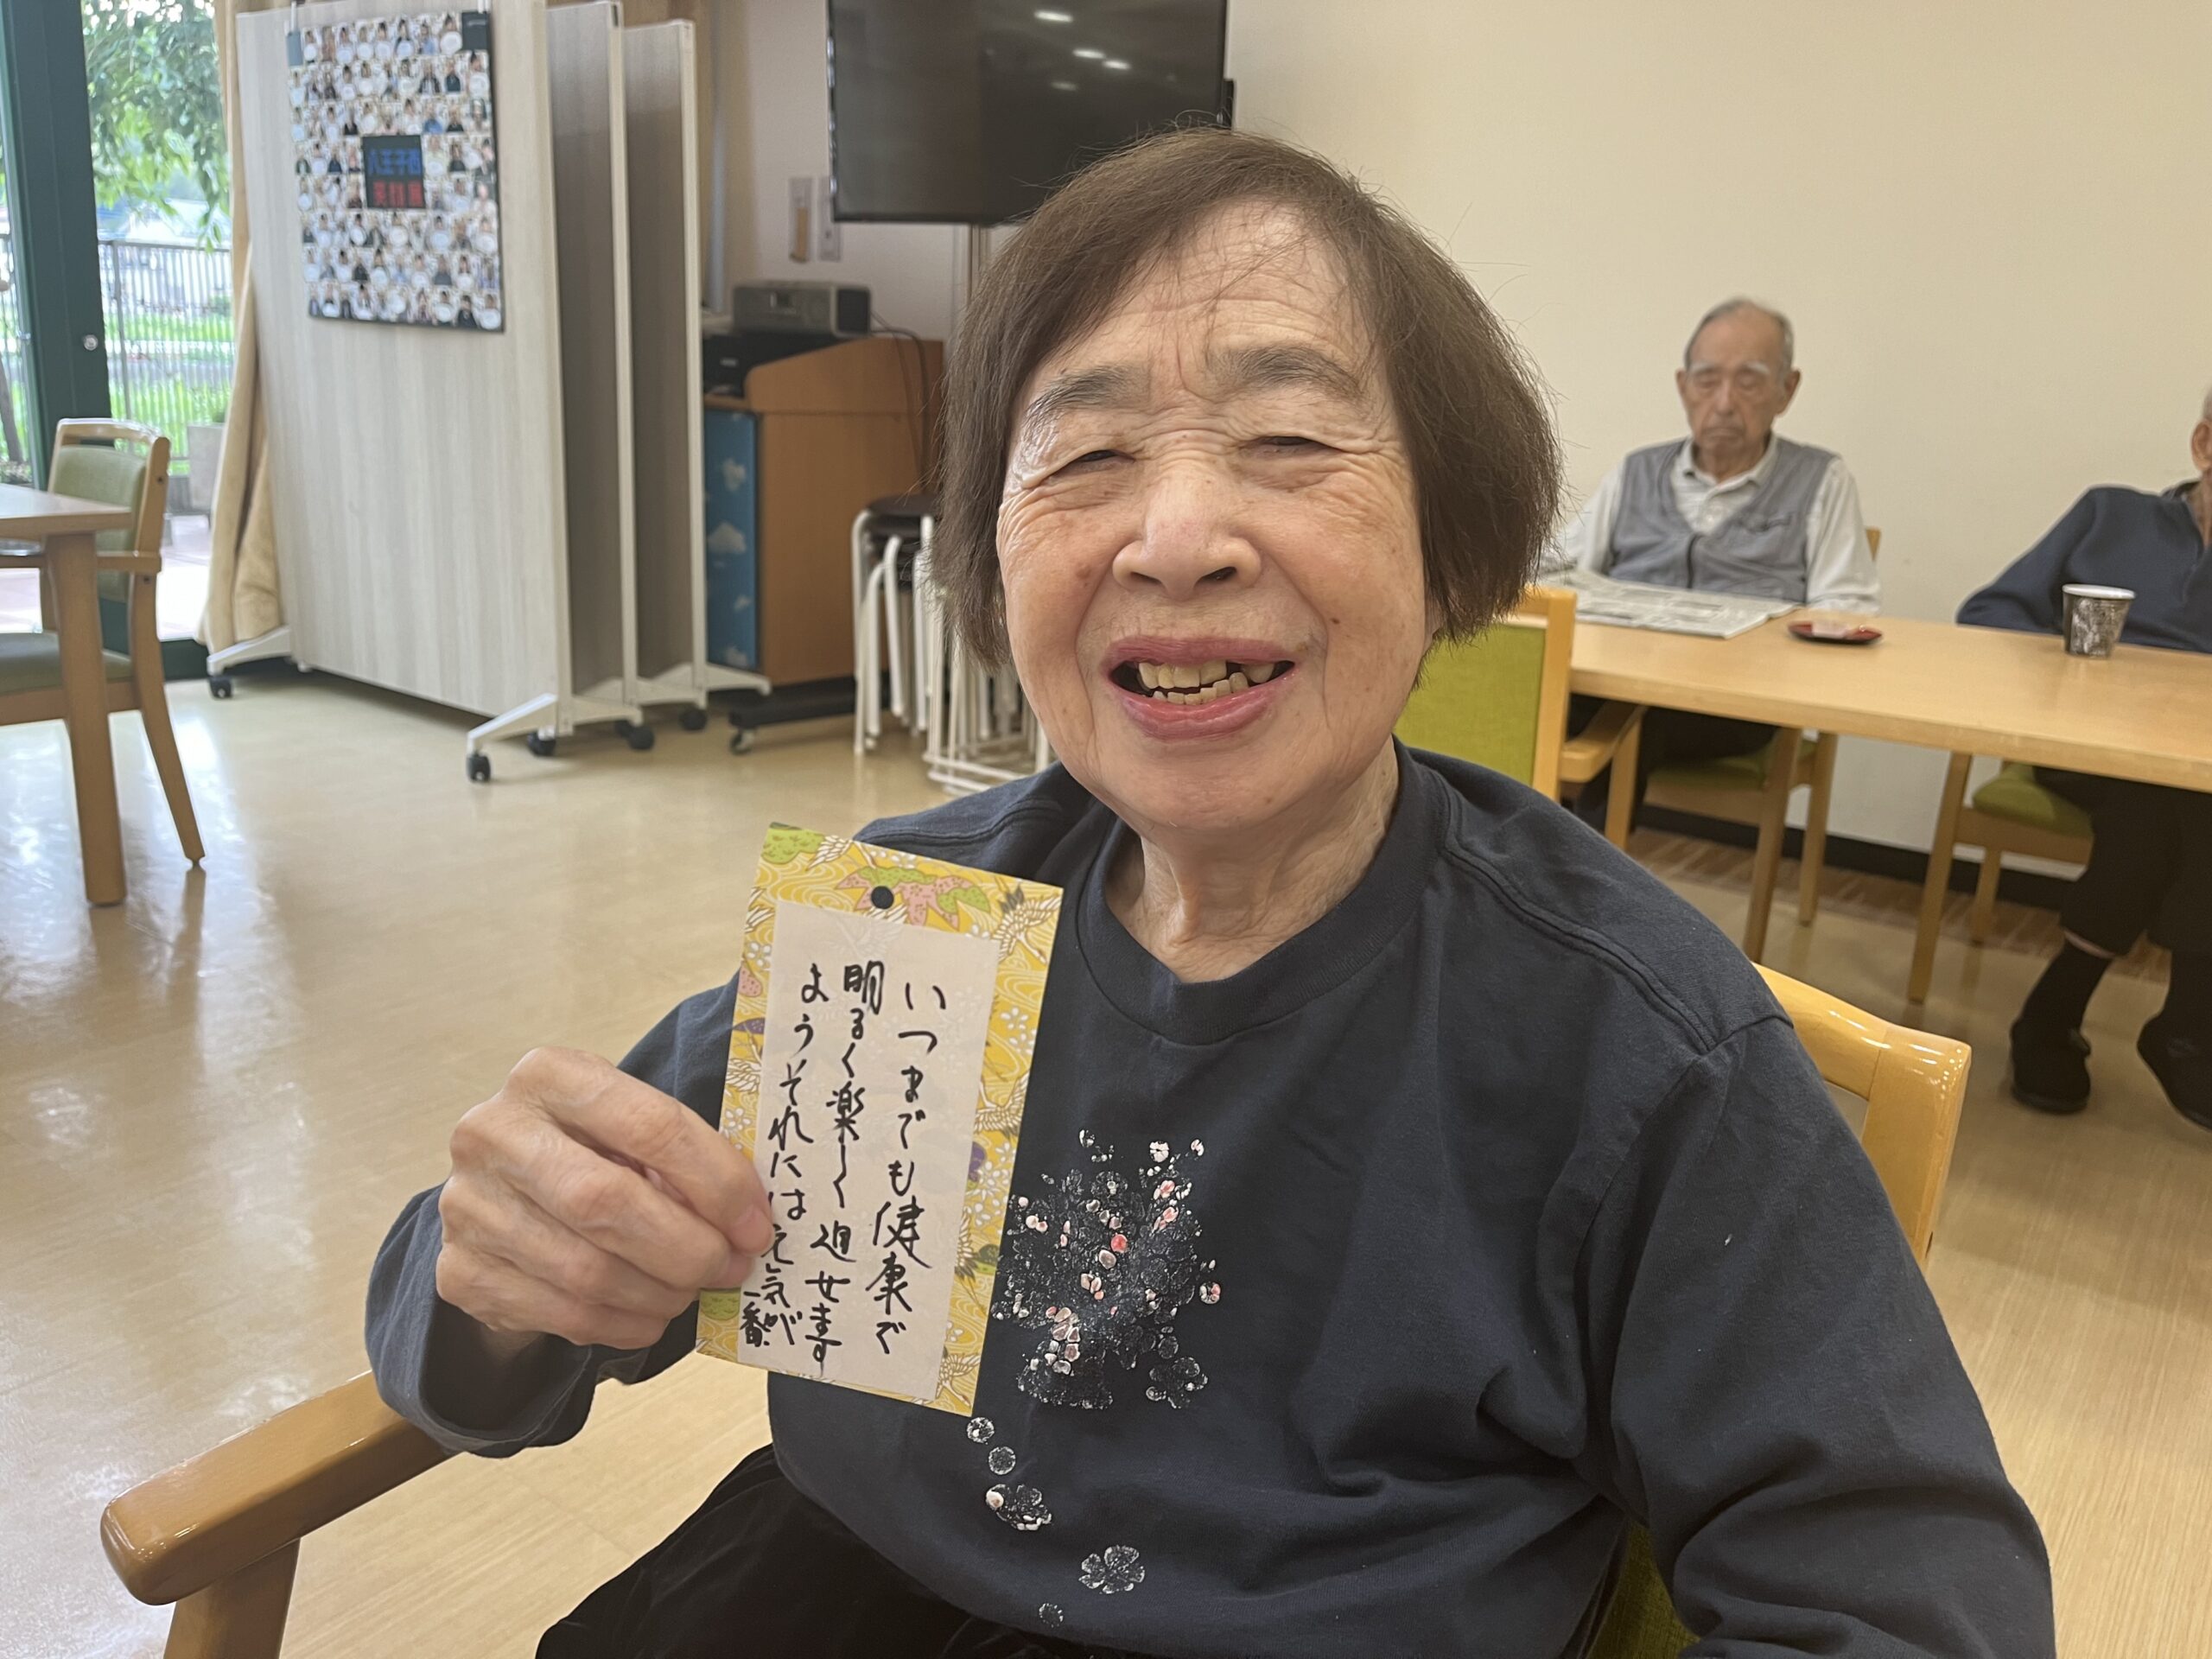 いつまでも健康で
明るく楽しく過せます
ようそれには元気が
一番
八王子西